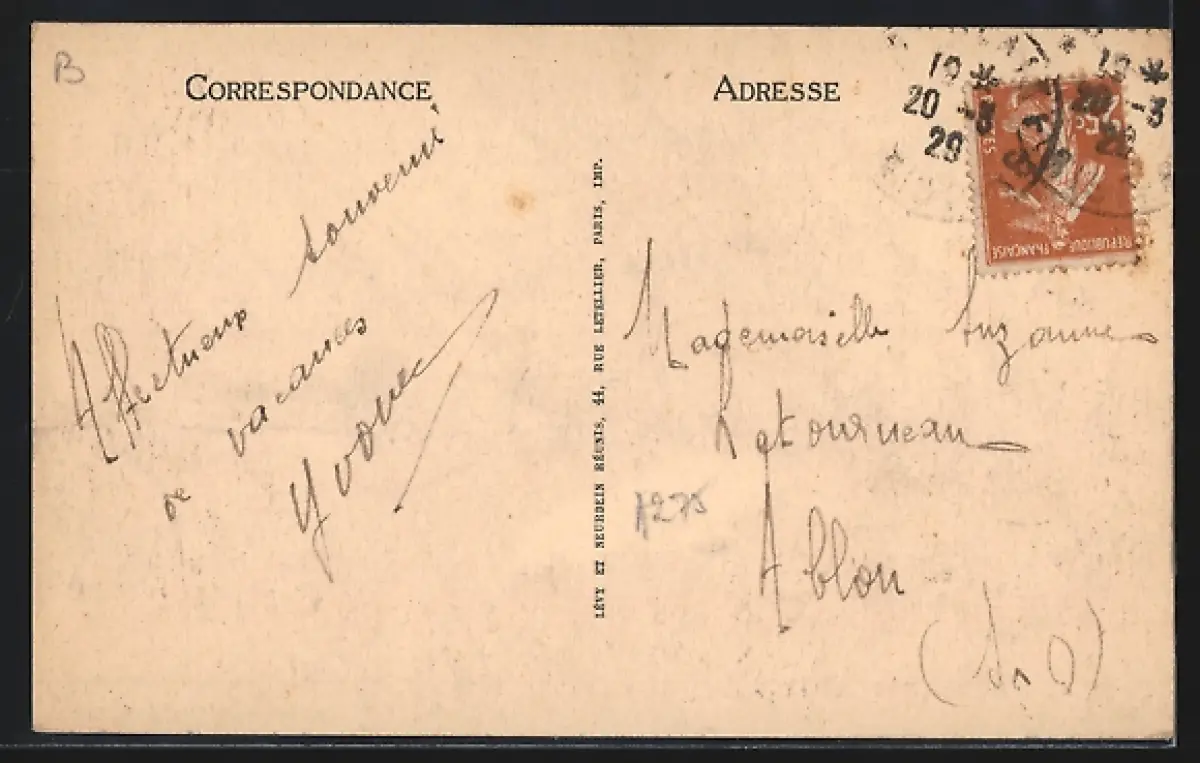 B
CORRESPONDANCE
Affectueux souvenir
de vacances
Yvonne
LÉVY ET NEURDEIN RÉUNIS, 44, RUE LETELLIER, PARIS, IMP.
ADRESSE
19 *
20 -8
29
19 *
20 -8
29
2c
POSTES
REPUBLIQUE FRANÇAISE
Mademoiselle Suzanne
Letourneau
Ablon
(S & O)
1275